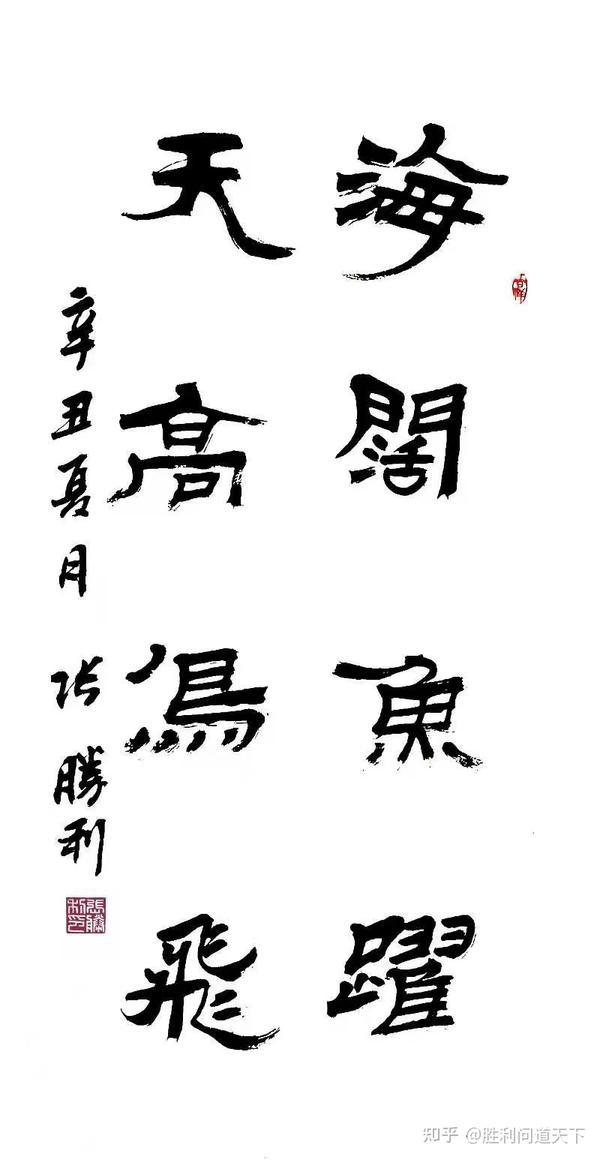 海闊魚躍
天高鳥飛
辛丑夏月 张勝利
知乎 @胜利问道天下